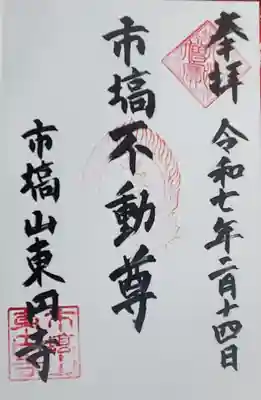 奉拝 令和七年二月十四日
市塙不動尊
市塙山東円寺